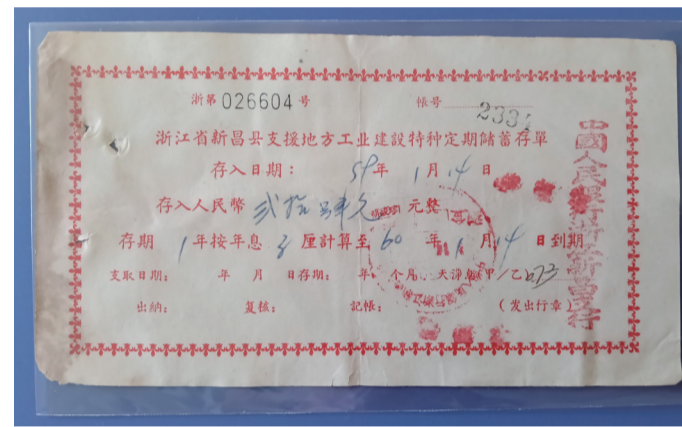 浙第 026604 号
帳号 233
浙江省新昌县支援地方工业建設特种定期儲蓄存單
存入日期: 59年 1月14日
存入人民幣 弍拾肆元 元整
存期 1年按年息 厘計算至 60 年 1 月 14 日到期
支取日期: 年 月 日存期: 年 个月 天 甲/乙
出納: 复核: 記帳: (发出行章)
中國人民銀行浙江新昌支行